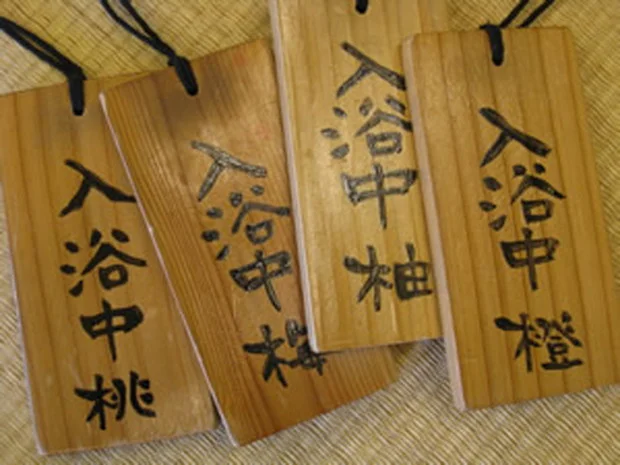 入浴中 桃
入浴中 梅
入浴中 柚
入浴中 橙